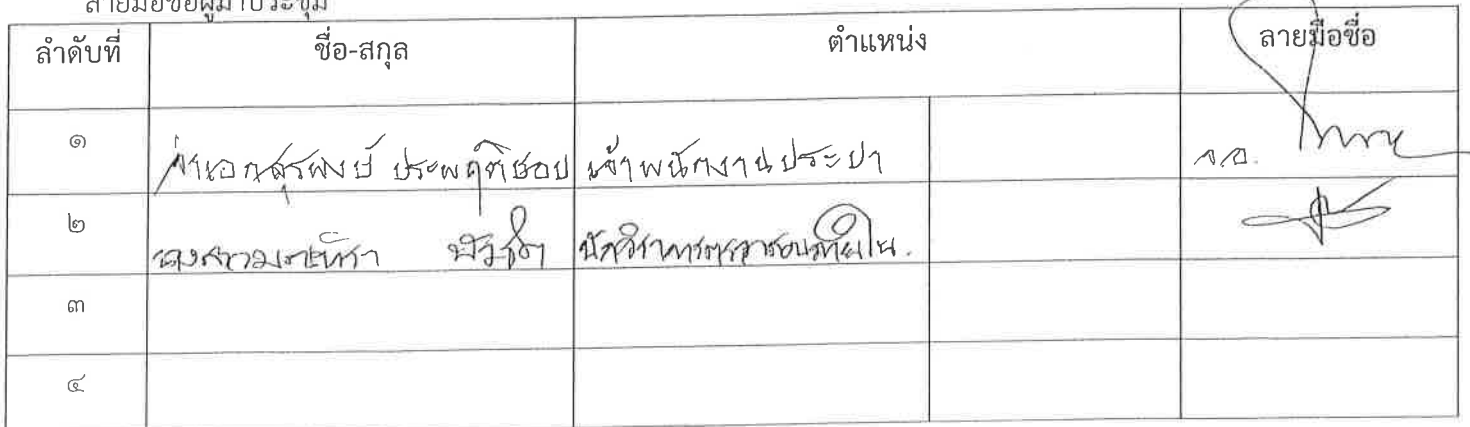 ลายมือชื่อผู้มาประชุม
ลำดับที่ ชื่อ-สกุล ตำแหน่ง ลายมือชื่อ
๑ จ่าเอกสุรพงษ์ ประพฤติชอบ เจ้าพนักงานประปา จ.อ.
๒ นางสาว นักวิชาการตรวจสอบภายใน.
๓
๔